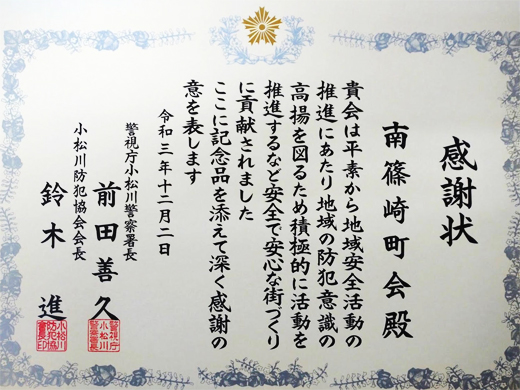 感謝状
南篠崎町会殿
貴会は平素から地域安全活動の
推進にあたり地域の防犯意識の
高揚を図るため積極的に活動を
推進するなど安全で安心な街づくり
に貢献されました
ここに記念品を添えて深く感謝の
意を表します
令和三年十二月二日
警視庁小松川警察署長
前田善久
警視庁小松川警察署長
小松川防犯協会会長
鈴木進
小松川防犯協会会長印